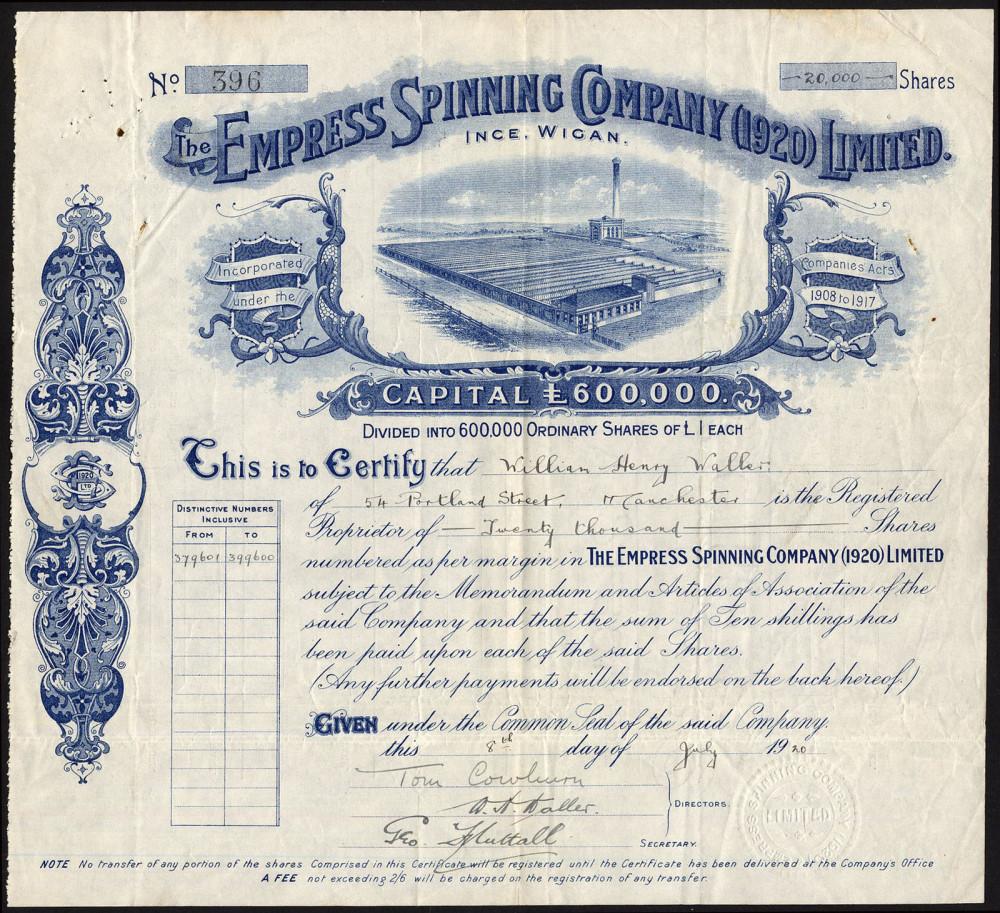 No 396
20,000 Shares
The EMPRESS SPINNING COMPANY (1920) LIMITED.
INCE, WIGAN.
Incorporated
under the
Companies' Acts
1908 to 1917
CAPITAL £600,000.
DIVIDED INTO 600,000 ORDINARY SHARES OF £1 EACH
This is to Certify that William Henry Waller
of 54 Portland Street, Manchester is the Registered
Proprietor of Twenty thousand Shares
numbered as per margin in THE EMPRESS SPINNING COMPANY (1920) LIMITED
subject to the Memorandum and Articles of Association of the
said Company and that the sum of Ten shillings has
been paid upon each of the said Shares.
(Any further payments will be endorsed on the back hereof.)
GIVEN under the Common Seal of the said Company.
this 8th day of July 1920
DISTINCTIVE NUMBERS
INCLUSIVE
FROM TO
379601 399600
1920
LTD
Tom Cowburn
Waller
DIRECTORS.
Geo. Nuttall
SECRETARY.
SPINNING COMPANY
LIMITED
NOTE No transfer of any portion of the shares Comprised in this Certificate will be registered until the Certificate has been delivered at the Company's Office
A FEE not exceeding 2/6 will be charged on the registration of any transfer.